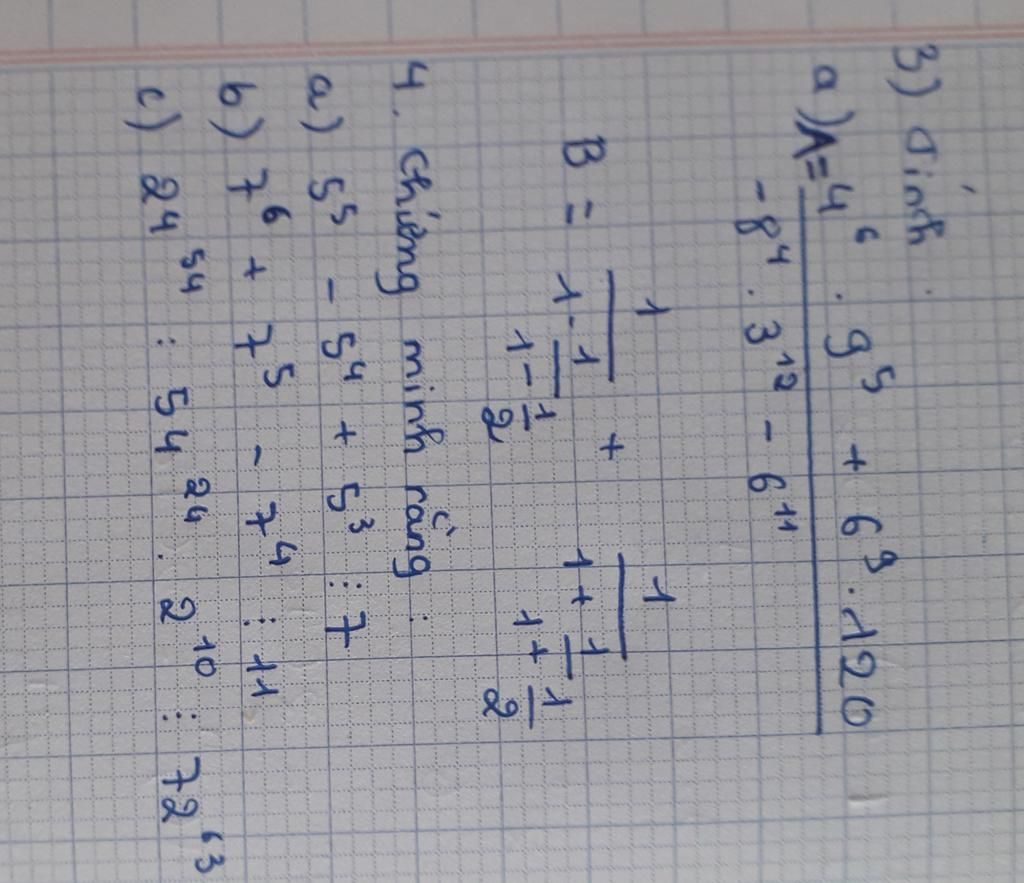 3) Tính.
a) A = 4⁶ . 9⁵ + 6⁹ . 120
-8⁴ . 3¹² - 6¹¹
1 1
B = 1 - 1 + 1 + 1
1 - 1 1 + 1
2 2
4. Chứng minh rằng :
a) 5⁵ - 5⁴ + 5³ ⋮ 7
b) 7⁶ + 7⁵ - 7⁴ ⋮ 11
c) 24⁵⁴ : 54²⁴ . 2¹⁰ ⋮ 72⁶³